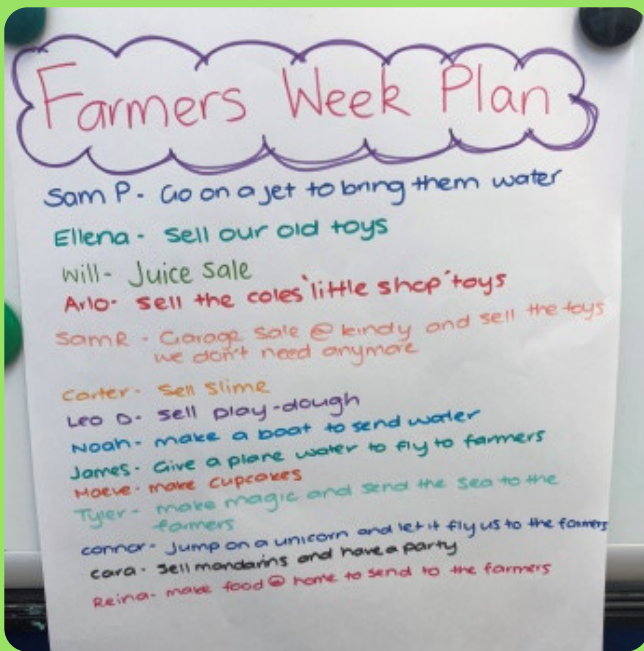 Farmers Week Plan
Sam P - Go on a jet to bring them water
Ellena - Sell our old toys
Will - Juice Sale
Arlo - sell the coles 'little shop' toys
Sam R - Garage Sale @ kindy and sell the toys
we don't need anymore
Carter - Sell Slime
Leo D - sell play-dough
Noah - make a boat to send water
James - Give a plane water to fly to farmers
Maeve - make cupcakes
Tyler - make magic and send the sea to the
farmers
connor - Jump on a unicorn and let it fly us to the farmers
cara - Sell mandarins and have a party
Reina - make food @ home to send to the farmers